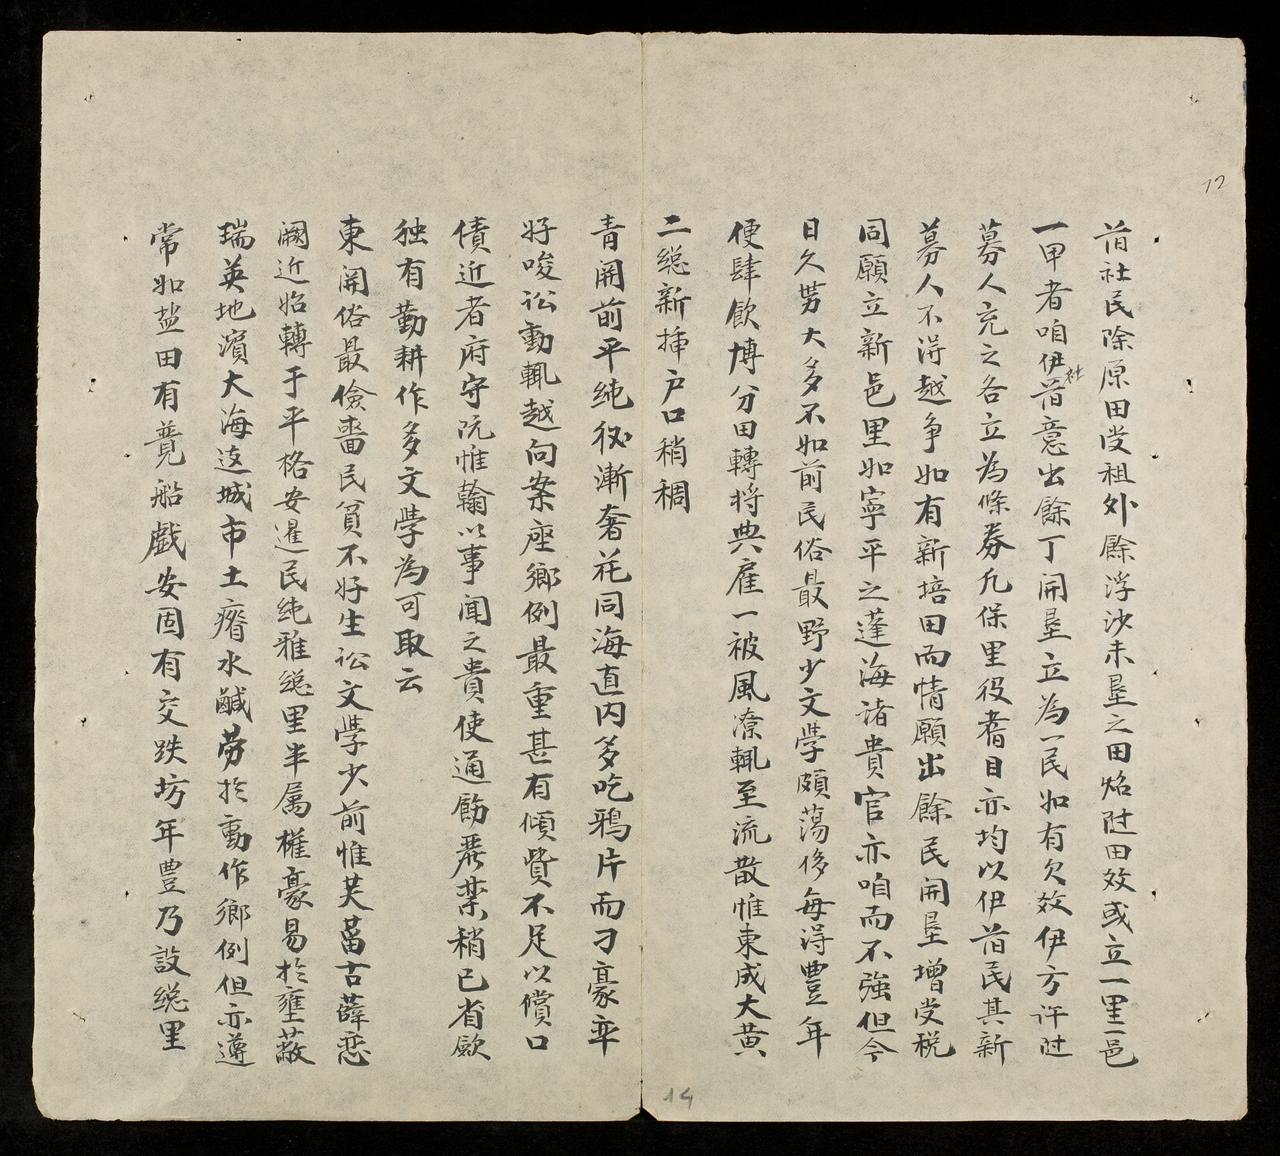 12
首社民除原田受租外餘浮沙未墾之田炤附田效或立一里一邑
一甲者咱伊社首意出餘丁開墾立為一民如有欠效伊方許附
募人充之各立為條券凡保里役耆目亦均以伊首民其新
募人不淂越争如有新培田而情願出餘民開墾增受税
同願立新邑里如寧平之蓬海诸貴官亦咱而不強但今
日久势大多不如前民俗最野少文學頗蕩侈每淂豊年
便肆飲博分田轉将典雇一被風潦輒至流散惟東成大黄
二総新揷户口稍稠
青開前平純後漸奢花同海直内多吃鴉片而刁豪卒
好唆訟動輒越向案座鄉例最重甚有傾貲不足以償口
債近者府守阮惟翰以事闻之貴使通飭严禁稍已省歛
独有勤耕作多文學為可取云
東開俗最儉嗇民貧不好生訟文學少前惟芙菖古薛恋
阙近始轉于平格安暹民純雅総里半属權豪易扵壅蔽
瑞英地濱大海这城市土瘠水鹹劳扵動作鄉例但亦遵
常如盐田有競船戲安固有交跌坊年豊乃設総里
14